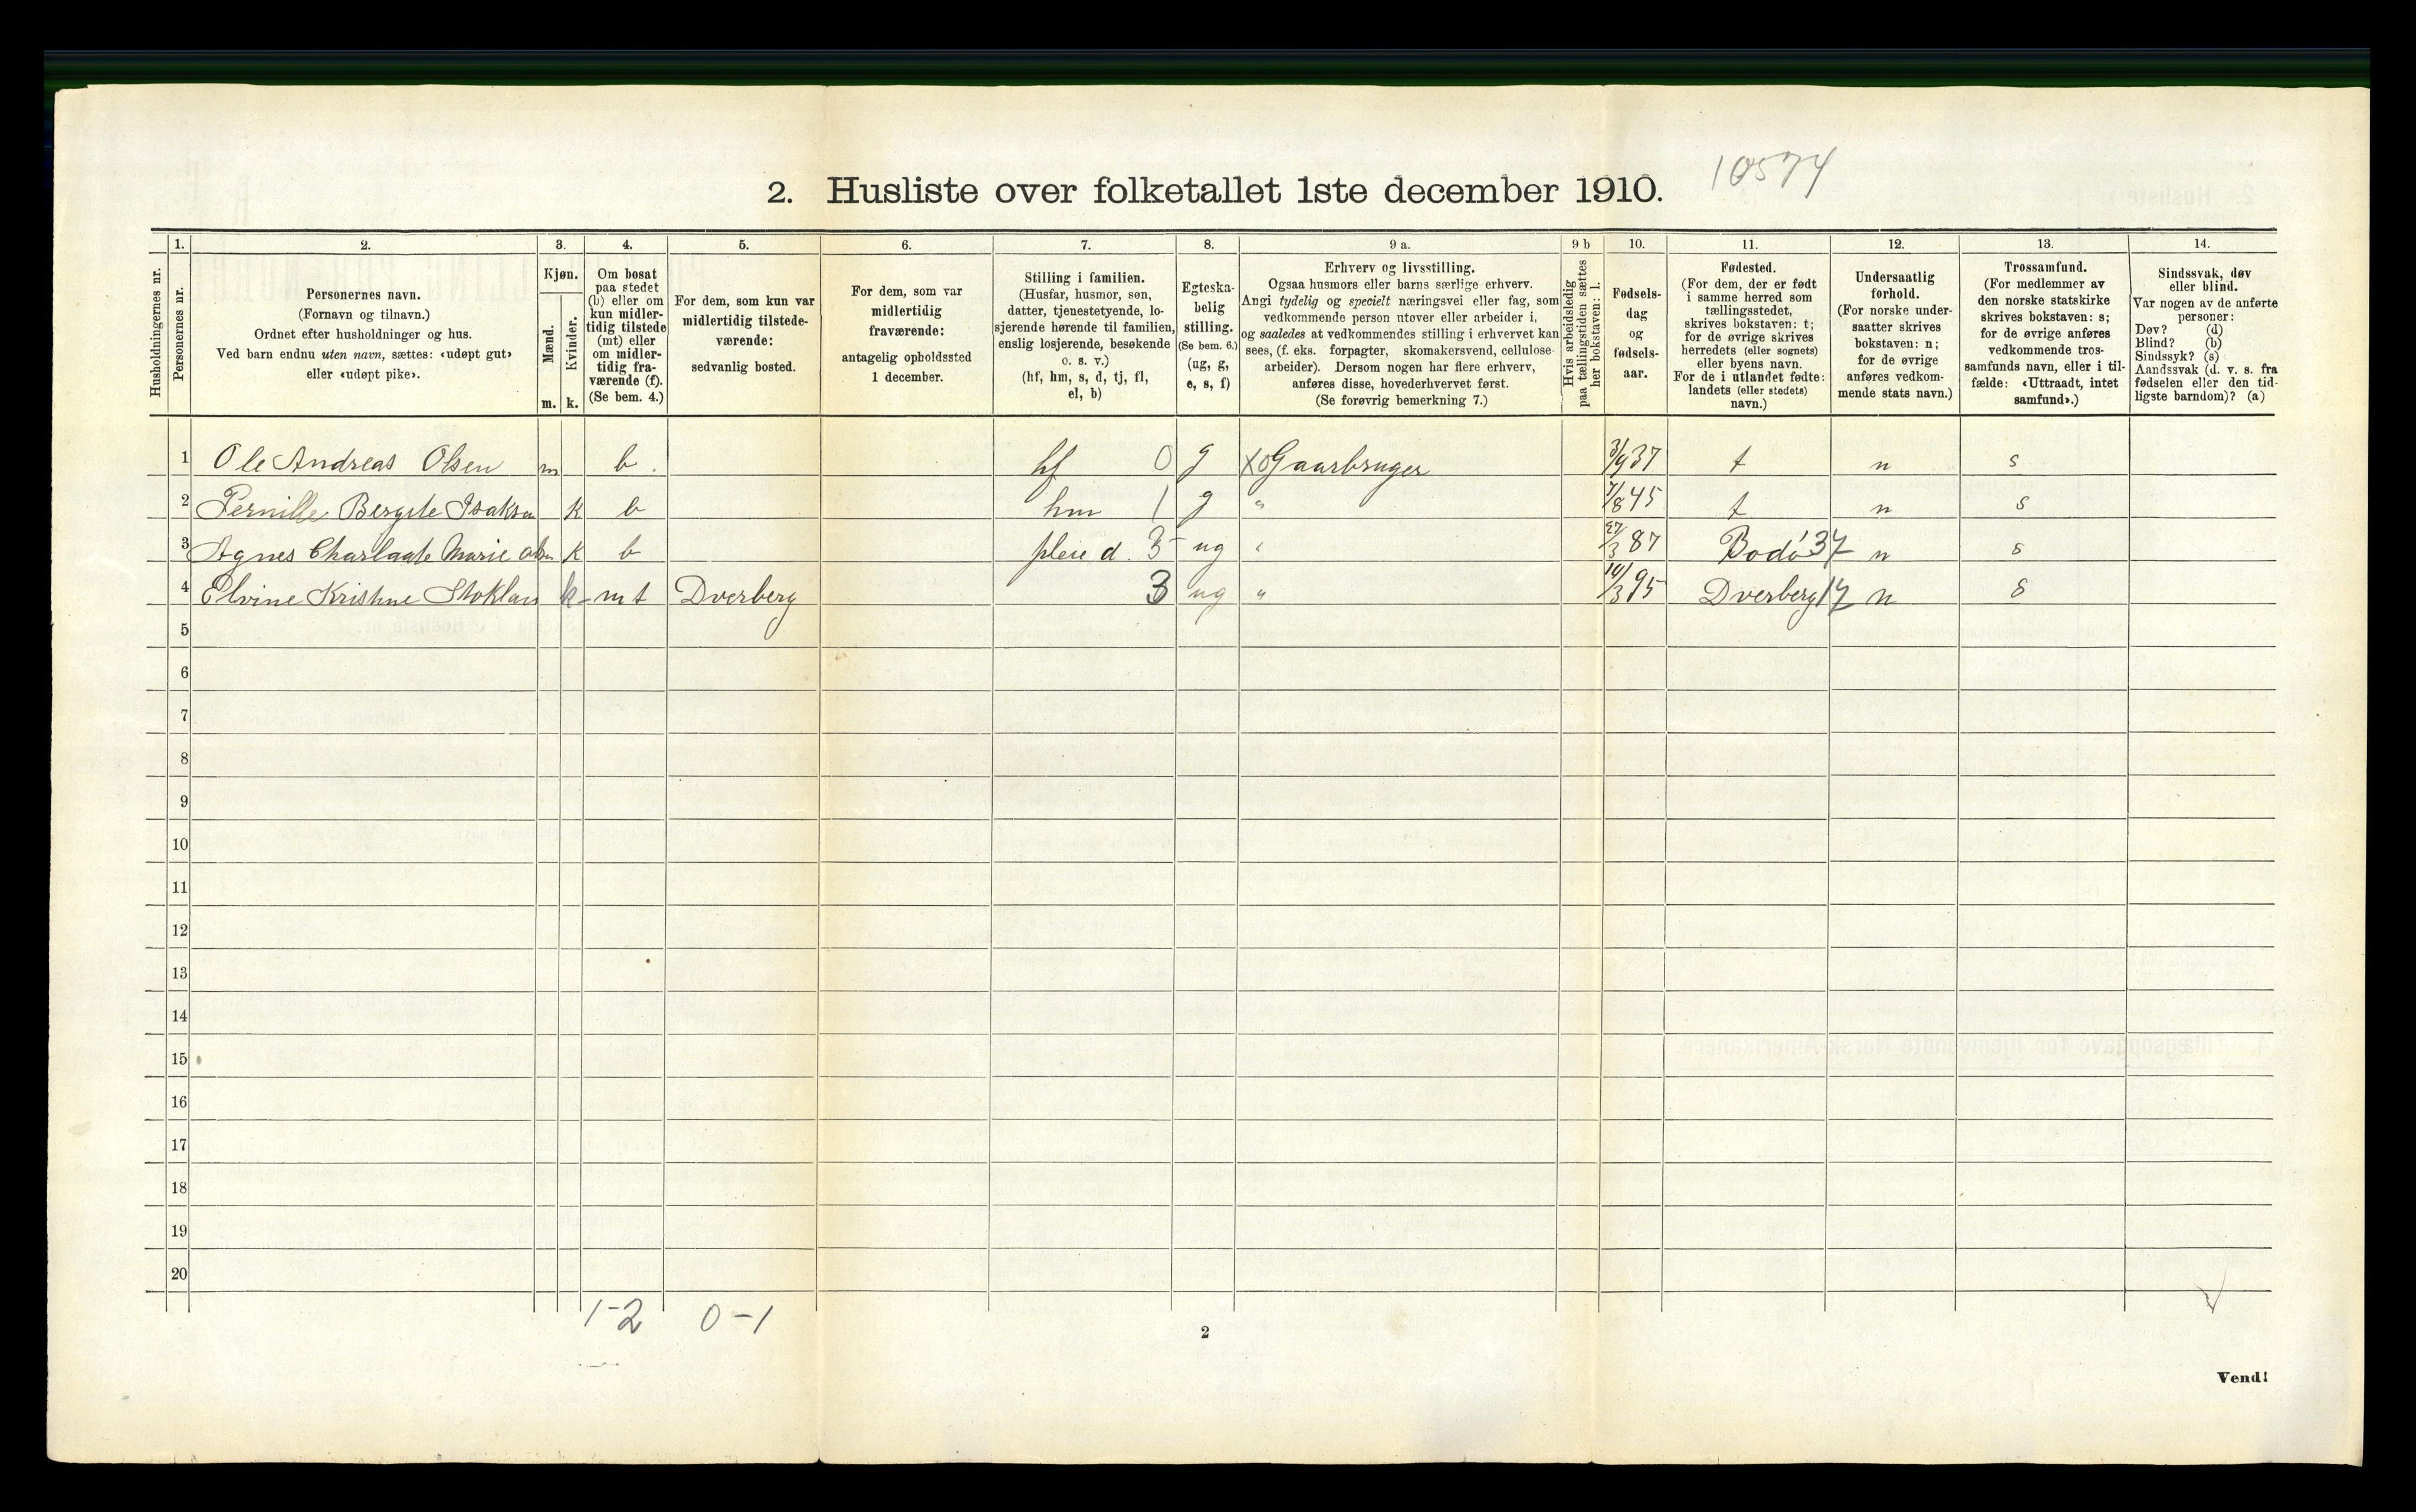 10574
2. Husliste over folketallet 1ste december 1910.
1. 2. 3. 4. 5. 6. 7. 8. 9 a. 9 b 10. 11. 12. 13. 14.
Husholdningernes nr.
Personernes nr.
Personernes navn.
(Fornavn og tilnavn.)
Ordnet efter husholdninger og hus.
Ved barn endnu uten navn, sættes: «udøpt gut»
eller «udøpt pike».
Kjøn.
Mænd.
Kvinder.
m. k.
Om bosat
paa stedet
(b) eller om
kun midler-
tidig tilstede
(mt) eller
om midler-
tidig fra-
værende (f).
(Se bem. 4.)
For dem, som kun var
midlertidig tilstede-
værende:
sedvanlig bosted.
For dem, som var
midlertidig
fraværende:
antagelig opholdssted
1 december.
Stilling i familien.
(Husfar, husmor, søn,
datter, tjenestetyende, lo-
sjerende hørende til familien,
enslig losjerende, besøkende
o. s. v.)
(hf, hm, s, d, tj, fl,
el, b)
Egteska-
belig
stilling.
(Se bem. 6.)
(ug, g,
e, s, f)
Erhverv og livsstilling.
Ogsaa husmors eller barns særlige erhverv.
Angi tydelig og specielt næringsvei eller fag, som
vedkommende person utøver eller arbeider i,
og saaledes at vedkommendes stilling i erhvervet kan
sees, (f. eks. forpagter, skomakersvend, cellulose-
arbeider). Dersom nogen har flere erhverv,
anføres disse, hovederhvervet først.
(Se forøvrig bemerkning 7.)
Hvis arbeidsledig
paa tællingstiden sættes
her bokstaven: l.
Fødsels-
dag
og
fødsels-
aar.
Fødested.
(For dem, der er født
i samme herred som
tællingsstedet,
skrives bokstaven: t;
for de øvrige skrives
herredets (eller sognets)
eller byens navn.
For de i utlandet fødte:
landets (eller stedets)
navn.)
Undersaatlig
forhold.
(For norske under-
saatter skrives
bokstaven: n;
for de øvrige
anføres vedkom-
mende stats navn.)
Trossamfund.
(For medlemmer av
den norske statskirke
skrives bokstaven: s;
for de øvrige anføres
vedkommende tros-
samfunds navn, eller i til-
fælde: «Uttraadt, intet
samfund».)
Sindssvak, døv
eller blind.
Var nogen av de anførte
personer:
Døv? (d)
Blind? (b)
Sindssyk? (s)
Aandssvak (d. v. s. fra
fødselen eller den tid-
ligste barndom)? (a)
1 Ole Andreas Olsen m b. hf 0 g X0 Gaarbruger 3/9 37 t n s
2 Pernille Bergite Isaksen k b hm 1 g " 7/8 45 t n s
3 Agnes Charlaate Marie Olsen k b pleie d. 3 ug " 27/3 87 Bodø 37 n s
4 Elvine Kristine k mt Dverberg 3 ug " 14/3 95 Dverberg 17 n s
5
6
7
8
9
10
11
12
13
14
15
16
17
18
19
20
1-2 0-1
2
Vend!